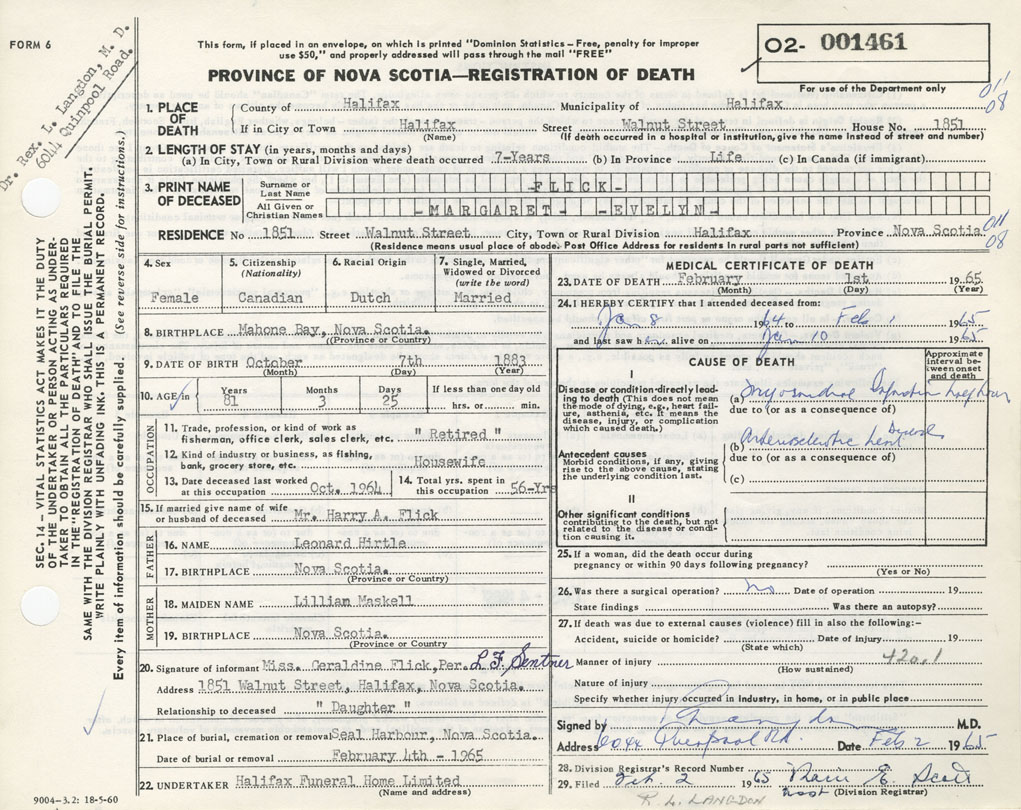 FORM 6
Dr. Rex. L. Langdon, M. D.
6044 Quinpool Road.
This form, if placed in an envelope, on which is printed "Dominion Statistics – Free, penalty for improper
use $50," and properly addressed will pass through the mail "FREE"
PROVINCE OF NOVA SCOTIA—REGISTRATION OF DEATH
02- 001461
For use of the Department only
01
08
1. PLACE OF DEATH
County of Halifax Municipality of Halifax.
If in City or Town Halifax Street Walnut Street House No. 1851
(Name) (If death occurred in hospital or institution, give the name instead of street and number)
2. LENGTH OF STAY (in years, months and days)
(a) In City, Town or Rural Division where death occurred 7-Years (b) In Province Life (c) In Canada (if immigrant)
3. PRINT NAME OF DECEASED
Surname or Last Name -FLICK-
All Given or Christian Names -MARGARET- -EVELYN-
RESIDENCE No 1851 Street Walnut Street City, Town or Rural Division Halifax Province Nova Scotia.
(Residence means usual place of abode. Post Office Address for residents in rural parts not sufficient)
04
08
SEC. 14 – VITAL STATISTICS ACT MAKES IT THE DUTY
OF THE UNDERTAKER OR PERSON ACTING AS UNDER-
TAKER TO OBTAIN ALL THE PARTICULARS REQUIRED
IN THE "REGISTRATION OF DEATH" AND TO FILE THE
SAME WITH THE DIVISION REGISTRAR WHO SHALL ISSUE THE BURIAL PERMIT.
WRITE PLAINLY WITH UNFADING INK. THIS IS A PERMANENT RECORD.
Every item of information should be carefully supplied. (See reverse side for instructions.)
4. Sex
Female
5. Citizenship
(Nationality)
Canadian
6. Racial Origin
Dutch
7. Single, Married,
Widowed or Divorced
(write the word)
Married
8. BIRTHPLACE Mahone Bay, Nova Scotia.
(Province or Country)
9. DATE OF BIRTH October 7th 1883
(Month) (Day) (Year)
10. AGE in
Years Months Days If less than one day old
81 3 25 hrs. or min.
OCCUPATION
11. Trade, profession, or kind of work as
fisherman, office clerk, sales clerk, etc. " Retired "
12. Kind of industry or business, as fishing,
bank, grocery store, etc. Housewife
13. Date deceased last worked
at this occupation Oct. 1964
14. Total yrs. spent in
this occupation 56-Yrs
15. If married give name of wife
or husband of deceased Mr. Harry A. Flick
FATHER
16. NAME Leonard Hirtle
17. BIRTHPLACE Nova Scotia.
(Province or Country)
MOTHER
18. MAIDEN NAME Lilliam Maskell
19. BIRTHPLACE Nova Scotia.
(Province or Country
20. Signature of informant Miss. Geraldine Flick, Per. L.F. Sentner
Address 1851 Walnut Street, Halifax, Nova Scotia.
Relationship to deceased " Daughter "
21. Place of burial, cremation or removal Seal Harbour, Nova Scotia.
Date of burial or removal February 4th - 1965
22. UNDERTAKER Halifax Funeral Home Limited
(Name and address)
9004-3.2: 18-5-60
MEDICAL CERTIFICATE OF DEATH
23. DATE OF DEATH February 1st 1965
(Month) (Day) (Year)
24. I HEREBY CERTIFY that I attended deceased from:
Jan 8 1964 to Feb 1 1965
and last saw h alive on Jan 10 1965
CAUSE OF DEATH
Approximate
interval be-
tween onset
and death
I
Disease or condition directly lead-
ing to death (This does not mean
the mode of dying, e.g., heart fail-
ure, asthenia, etc. It means the
disease, injury, or complication
which caused death.)
(a) Myocardial Infarction half hour
due to (or as a consequence of)
Antecedent causes
Morbid conditions, if any, giving
rise to the above cause, stating
the underlying condition last.
(b) Arteriosclerotic heart Disease
due to (or as a consequence of)
(c)
II
Other significant conditions
contributing to the death, but not
related to the disease or condi-
tion causing it.
25. If a woman, did the death occur during
pregnancy or within 90 days following pregnancy?
(Yes or No)
26. Was there a surgical operation? No Date of operation 19
State findings Was there an autopsy?
27. If death was due to external causes (violence) fill in also the following:–
Accident, suicide or homicide? Date of injury 19
(State which)
Manner of injury 420.1
(How sustained)
Nature of injury
Specify whether injury occurred in industry, in home, or in public place
Signed by Langdon M.D.
Address 6044 Quinpool Rd. Date Feb 2 1965
28. Division Registrar's Record Number
29. Filed Feb. 2 1965 E. Scott
(Division Registrar)
R. L. LANGDON